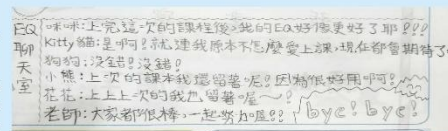 EQ聊天室
咪咪:上完這次的課程後,我的EQ好像更好了耶!!!
Kitty貓:是啊!就連我原本不怎麼愛上課,現在都會期待了
狗狗:沒錯!沒錯!
小熊:上一次的課本我還留著呢!因為很好用啊!
花花:上上上一次的我也留著喔~!
老師:大家都很棒,一起努力喔!!
bye! bye!